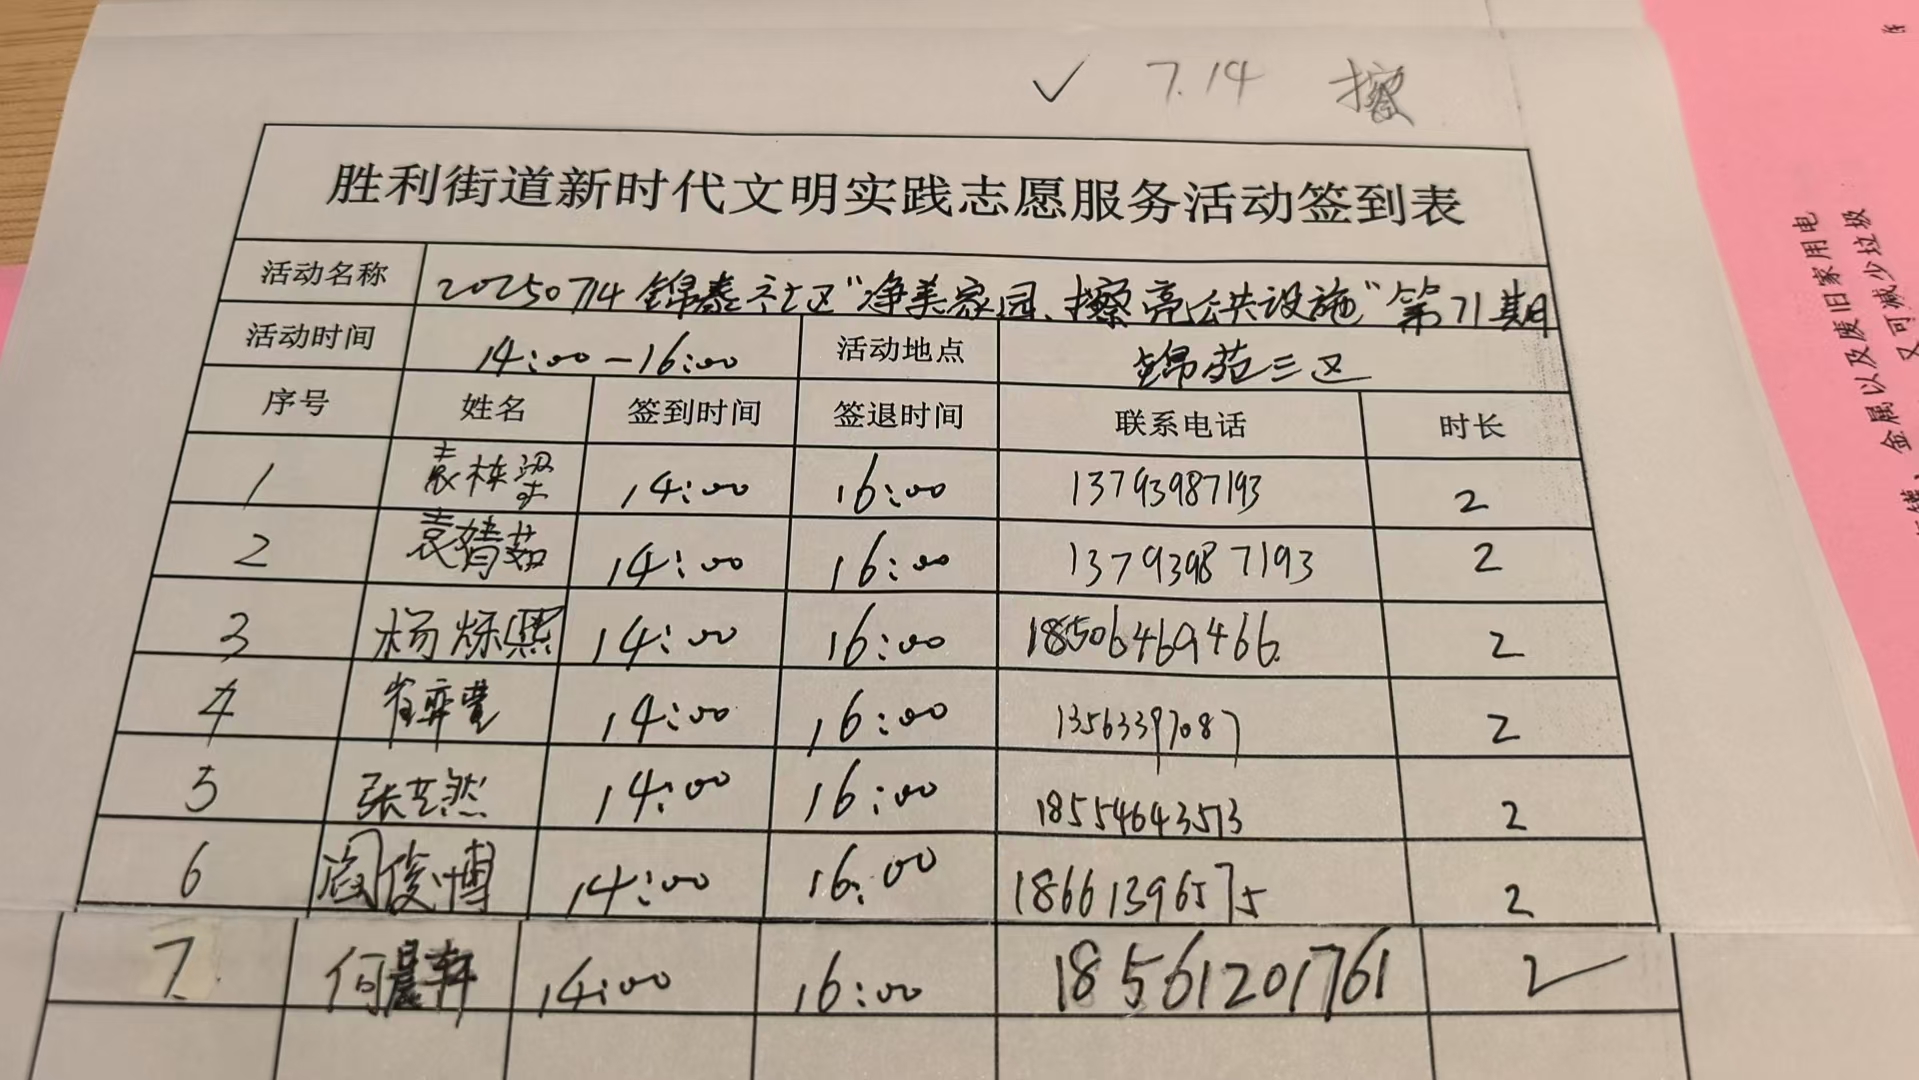 ✓ 7.14 擦
胜利街道新时代文明实践志愿服务活动签到表
活动名称 20250714锦泰社区“净美家园、擦亮公共设施”第71期
活动时间 14:00-16:00 活动地点 锦苑三区
序号 姓名 签到时间 签退时间 联系电话 时长
1 袁栋梁 14:00 16:00 13793987193 2
2 袁婧茹 14:00 16:00 13793987193 2
3 杨烁熙 14:00 16:00 18506469466 2
4 14:00 16:00 13563397087 2
5 张艺然 14:00 16:00 18554643573 2
6 阎俊博 14:00 16:00 18661396575 2
7. 何晨轩 14:00 16:00 18561201761 2
金属以及废旧家用电
又可减少垃圾